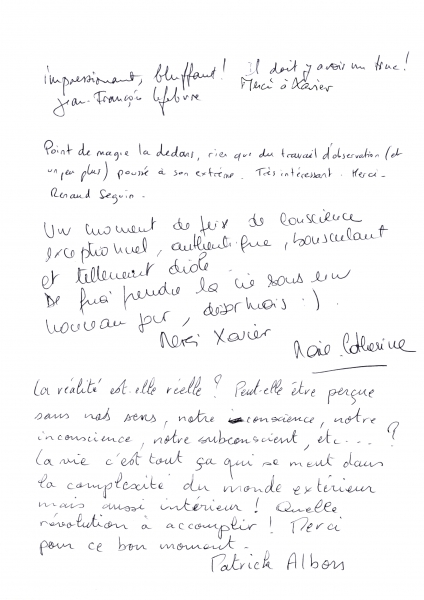 impressionnant, bluffant! Il doit y avoir un truc!
Jean-François Lefebvre Merci à Xavier
Point de magie la dedans, rien que du travail d'observation (et
un peu plus) poussé à son extrême. Très intéressant. Merci -
Renaud Seguin.
Un moment de de conscience
exceptionnel, authentique, bousculant
et tellement drôle.
la vie sous un
nouveau jour, désormais :).
Merci Xavier
Marie Catherine
La réalité est-elle réelle ? Peut-elle être perçue
sans nos sens, notre conscience, notre
inconscience, notre subconscient, etc.... ?
La vie c'est tout ça qui se meut dans
la complexité du monde extérieur
mais aussi intérieur ! Quelle
révolution à accomplir ! Merci
pour ce bon moment.
Patrick Albon